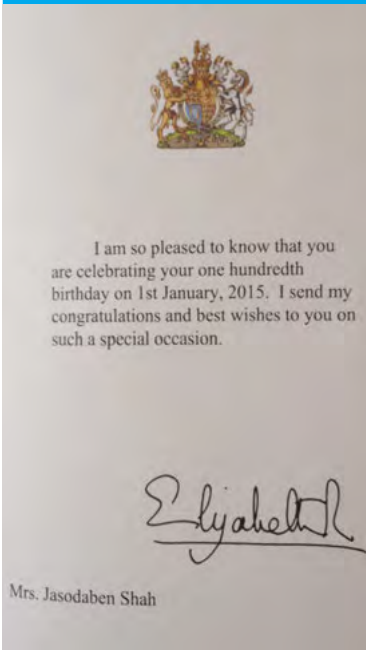 I am so pleased to know that you
are celebrating your one hundredth
birthday on 1st January, 2015.  I send my
congratulations and best wishes to you on
such a special occasion.
Elizabeth R
Mrs. Jasodaben Shah